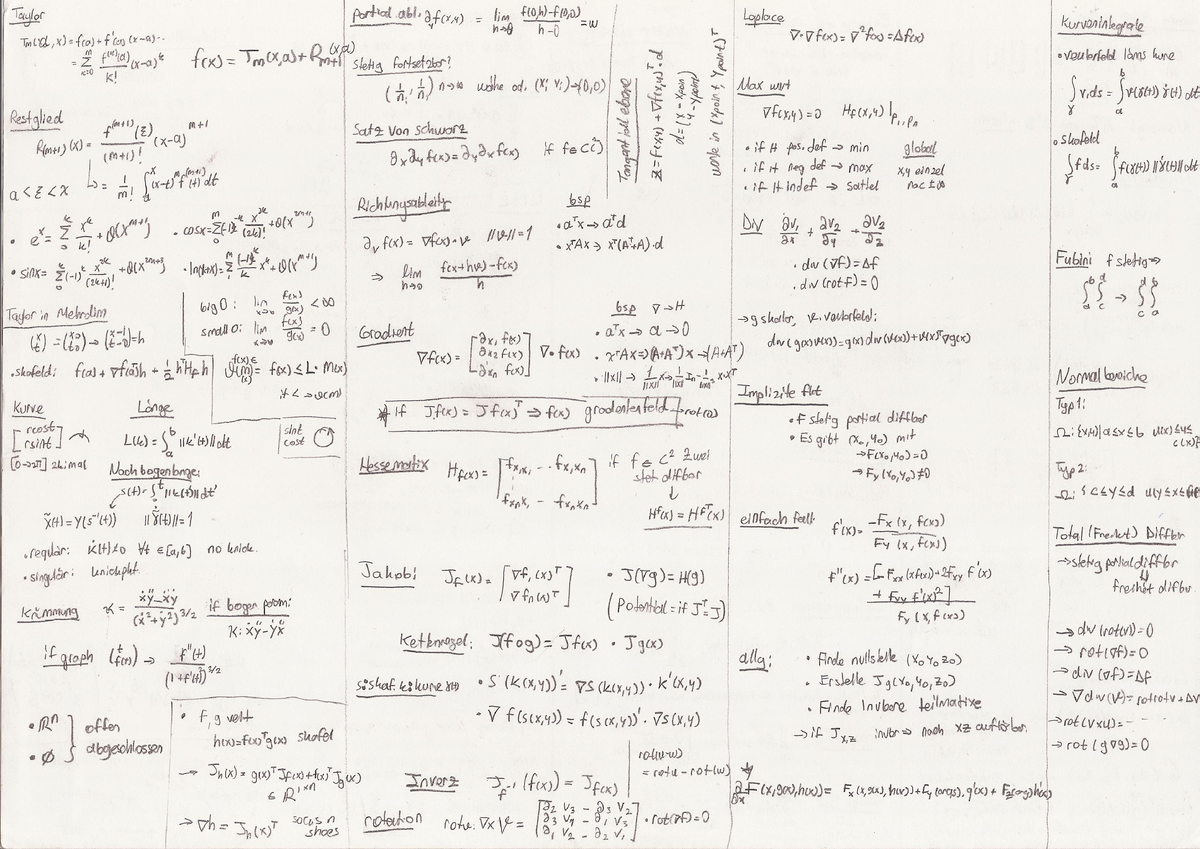 Taylor
Tm(x, x) = f(a) + f'(a) (x-a) ...
= Σ_{k=0}^{m} f^{(k)}(a)/k! (x-a)^k
f(x) = Tm(x,a) + R_{m+1}(x,a)
Restglied
R_{(m+1)}(x) = f^{(m+1)}(ξ)/(m+1)! (x-a)^{m+1}
a < ξ < x
= 1/m! ∫_a^x (x-t)^m f^{(m+1)}(t) dt
• e^x = Σ_0^m x^k/k! + O(x^{m+1})
• cosx = Σ_0^m (-1)^k x^{2k}/(2k)! + O(x^{2m+1})
• sinx = Σ_0^k (-1)^k x^{2k}/(2k+1)! + O(x^{2m+3})
big O: lim_{x→0} f(x)/g(x) < ∞
small o: lim_{x→0} f(x)/g(x) = 0
Taylor in Mehrdim
(x t) = (x0 t0) → (x-1 t-0) = h
• skafeld: f(a) + ∇f(a)^T h + 1/2 h^T H_f h
f(x) ≤ L · M(x)
Kurve
[rcost rsint]
[0→2π] 2h mal
Länge
L(k) = ∫_a^b ||k'(t)|| dt
sint
cost
Nach bogenlänge:
s(t) = ∫_0^t ||k(t)|| dt'
x̃(t) = γ(s^{-1}(t)) ||γ̇(t)|| = 1
• regulär: k̇(t) ≠ 0 ∀t ∈ [a,b] no knick.
• singulär:
Krümmung
ϰ = (ẋÿ - ẍẏ)/(ẋ²+ẏ²)^{3/2}
if bogen param:
K: ẋÿ - ẏẍ
if graph (t f(t)) → f''(t)/(1+f'(t)²)^{3/2}
• ℝ^n
• ∅
} offen
abgeschlossen
• f, g vekt
h(x) = f(x)^T g(x) skafel
→ J_h(x) = g(x)^T J_f(x) + f(x)^T J_g(x)
∈ ℝ^{1×n}
→ ∇h = J_h(x)^T
Partial abl. ∂_y f(x,y) = lim_{h→0} (f(0,h) - f(0,0))/(h-0) = w
stetig fortsetzbar?
(1/n, 1/n) n→∞ wähle od. (x_i, y_i) → (0,0)
Satz von schwarz
∂x ∂y f(x) = ∂y ∂x f(x) if f ∈ C²
Tangential ebene
z = f(x,y) + ∇f(x,y)^T · d
d = (x - xpoint y - ypoint)
work in (xpoint, ypoint)^T
Richtungsableity
∂_v f(x) = ∇f(x) · v ||v|| = 1
⇒ lim_{h→0} (f(x+hv) - f(x))/h
bsp
• a^T x → a^T d
• x^T A x → x^T (A^T + A) · d
Gradient
∇f(x) = [∂x1 f(x) ∂x2 f(x) ∂xn f(x)] ∇ · f(x)
bsp ∇ → H
• a^T x → a → 0
• x^T A x → (A + A^T) x → (A + A^T)
if J_f(x) = J f(x)^T ⇒ f(x) gradientenfeld → rot(0)
Hessematrix
H_f(x) = [f_{x1x1} ... f_{x1xn} f_{xnx1} ... f_{xnxn}]
if f ∈ C² zwei
stet difbar
↓
H f(x) = H f^T(x)
Jakobi
J_f(x) = [∇f1(x)^T ∇fn(x)^T]
• J(∇g) = H(g)
(Potential = if J^T = J)
Kettenregel: J(f∘g) = J f(x) · J g(x)
• S(k(x,y))' = ∇S(k(x,y)) · k'(x,y)
• ∇ f(s(x,y)) = f(s(x,y))' · ∇s(x,y)
Inverz J_{f^{-1}}(f(x)) = J_f(x)
rot(u-w)
= rot u - rot(w)
rotation
rot v: ∇ × V = [∂2 V3 - ∂3 V2 ∂3 V1 - ∂1 V3 ∂1 V2 - ∂2 V1] • rot(∇f) = 0
Laplace
∇ · ∇ f(x) = ∇² f(x) = Δf(x)
Max wert
∇f(x,y) = 0 H_f(x,y) |_{p1, pn}
• if H pos. def → min
• if H neg def → max
• if H indef → sattel
global
x,y einzel
nac ±∞
Div ∂v1/∂x + ∂v2/∂y + ∂v2/∂z
• div (∇f) = Δf
• div (rot f) = 0
→ g skallar, v. vektorfeld:
div (g(x)v(x)) = g(x) div(v(x)) + v(x)^T ∇g(x)
Implizite fkt
• F stetig partial diffbar
• Es gibt (x0, y0) mit
→ F(x0, y0) = 0
→ Fy(x0, y0) ≠ 0
einfach fall:
f'(x) = -Fx(x, f(x)) / Fy(x, f(x))
f''(x) = [-Fxx(x f(x)) - 2Fxy f'(x)
+ Fyy f'(x)²]
Fy(x, f(x))
allg:
• Finde nullstelle (x0 y0 z0)
• Erstelle Jg(x0, y0, z0)
• Finde invbare teilmatrixe
→ if J_{x,z} invbr ⇒ nach xz auflösbar.
∂/∂x F(x, g(x), h(x)) = Fx(x, g(x), h(x)) + Fy(args) · g'(x) + Fz(arg) h'(x)
Kurvenintegrale
• vektorfeld längs kurve
∫_γ v, ds = ∫_a^b v(γ(t)) γ̇(t) dt
• skafeld
∫_γ f ds = ∫_a^b f(γ(t)) ||γ̇(t)|| dt
Fubini f stetig ⇒
∫_a^b ∫_c^d → ∫_c^d ∫_a^b
Normalbereiche
Typ 1:
Ω: {x,y | a ≤ x ≤ b u(x) ≤ y ≤
Typ 2:
Ω: {c ≤ y ≤ d u(y) ≤ x ≤
Total (Frechet) Diffbr
→ stetig partial diffbr
⇓
freshet difbr
→ div (rot(v)) = 0
→ rot (∇f) = 0
→ div (∇f) = Δf
→ ∇ div (V) = rot rot v + Δv
→ rot (v×u) = - - -
→ rot (g ∇g) = 0